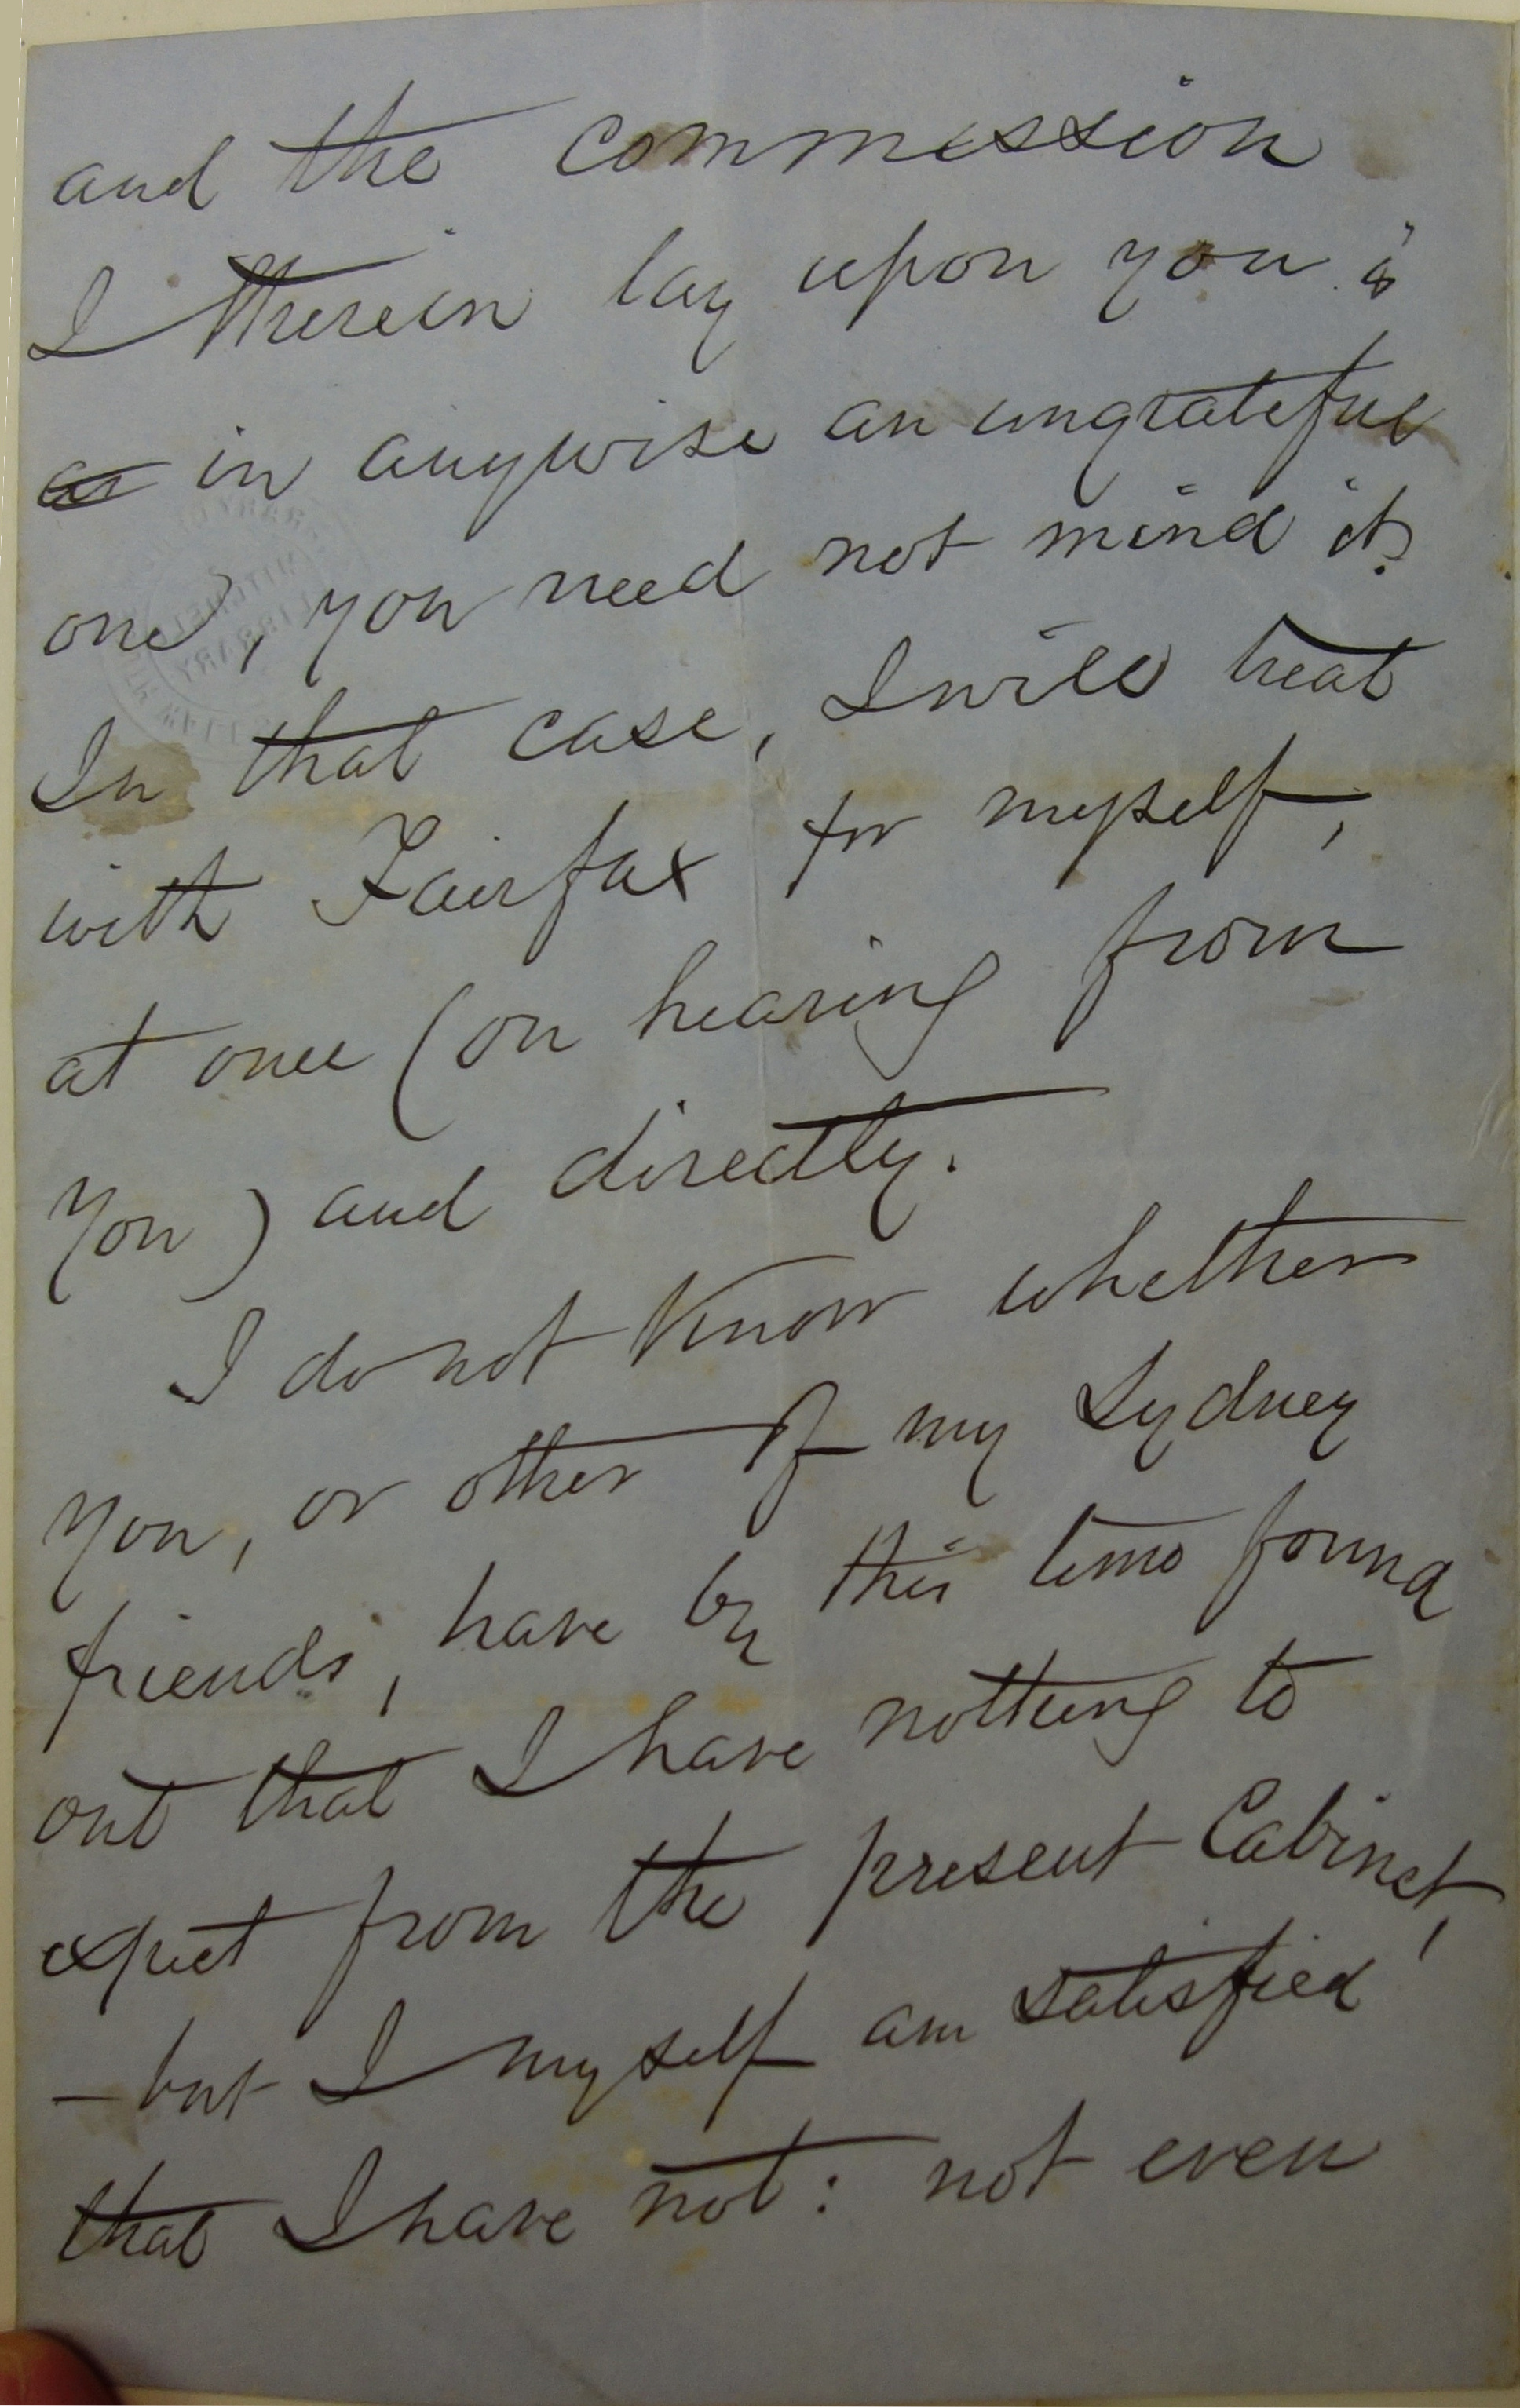 and the commission
I therein lay upon you is
an in anywise an ungrateful
one, you need not mind it.
In that case, I will treat
with Fairfax for myself,
at once (on hearing from
you) and directly.
I do not know whether
you, or other of my Sydney
friends, have by this time found
out that I have nothing to
expect from the present Cabinet,
—but I myself am satisfied
that I have not: not even
MITCHELL
LIBRARY